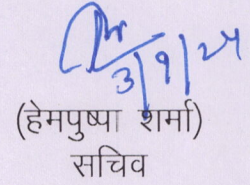 3/9/24
(हेमपुष्पा शर्मा)
सचिव